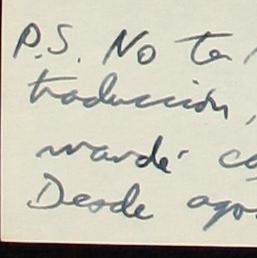 P.S. No te
traducción,
mandé
Desde